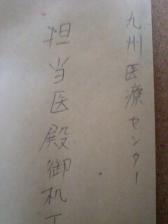 九州医療センター
担当医殿御机下